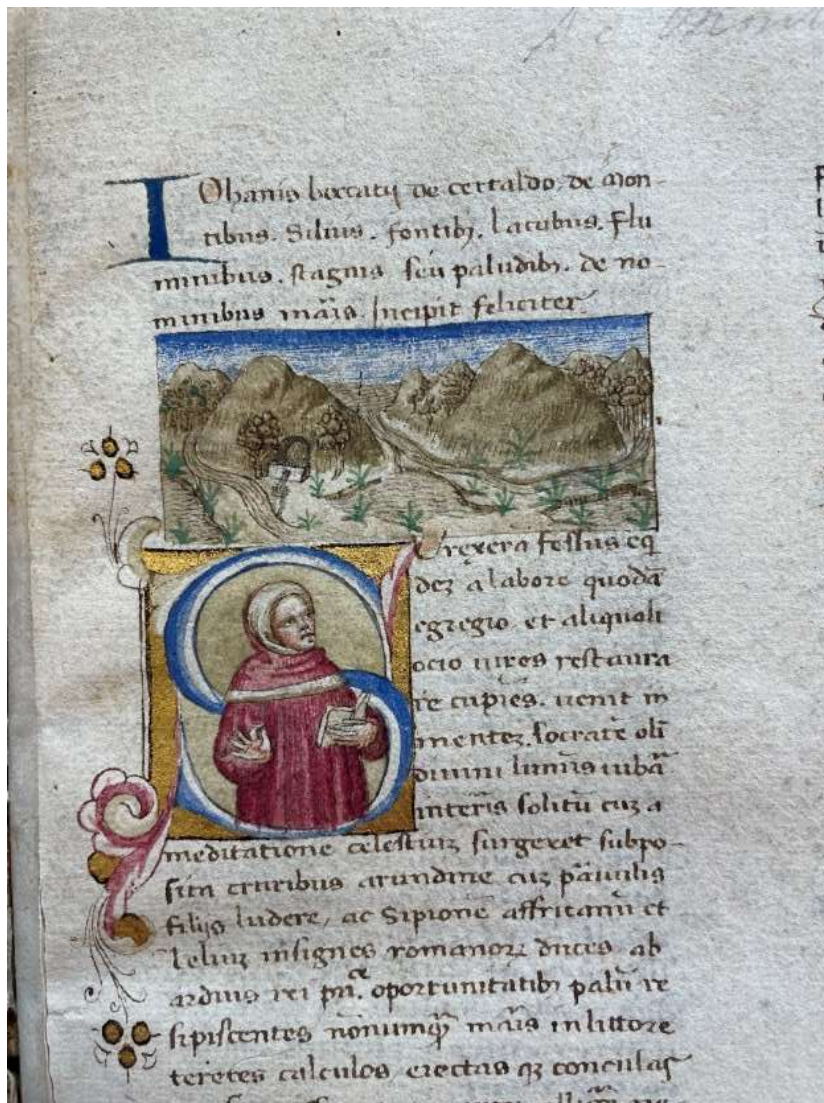 IOhanis boccatij de certaldo. de mon-
tibus. Siluis. fontibꝫ. lacubus. flu
minibus. stagnis seu paludibꝫ. de no-
minibus mãis incipit feliciter
Srexera fessus eq̃
deꝫ a labore quodã
egregio et aliquali
ocio uires restaura
re cupiẽs. uenit in
menteꝫ. socratẽ oli
diuini luminis iubã
solitũ cuꝫ a
meditatione celestiuꝫ surgeret subpo-
sita cruribus arundine cuꝫ pãuulis
filijs ludere, ac Sipionẽ affricanũ et
leliuꝫ insignes romanoꝝ duces ab
arduis rei oportunitatibꝫ re
sipiscentes nõnumqꝫ mãis in littore
teretes calculos erectas qꝫ conculas